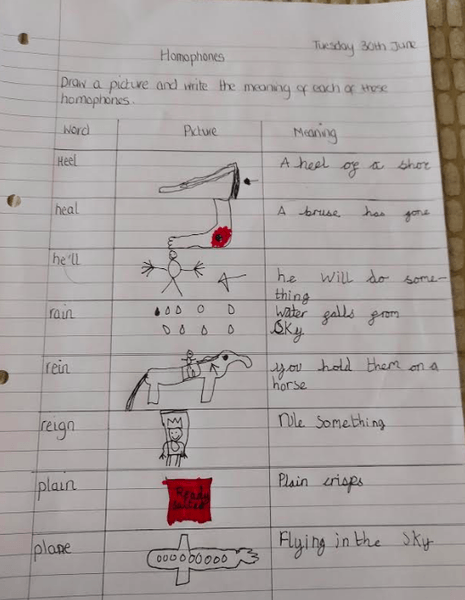 Tuesday 30th June
Homophones
Draw a picture and write the meaning of each of these
homophones.
Word Picture Meaning
Heel A heel of a shoe
heal A bruse has gone
he'll he will do some-
thing
rain Water falls from
Sky
rein you hold them on a
horse
reign rule something
plain Ready
salted Plain crisps
plane Flying in the Sky